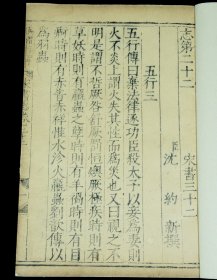 志第二十二　宋書三十二
臣沈約新撰
五行三
五行傳曰棄法律逐功臣殺太子以妾為妻則
火不炎上謂火失其性而為災也又曰視之不
明是謂不哲厥咎舒厥罰恒燠厥極疾時則有
草妖時則有蠃蟲之孽時則有羊禍時則有目
痾時則有赤眚赤祥惟水沴火蠃蟲劉歆傳以
為羽蟲